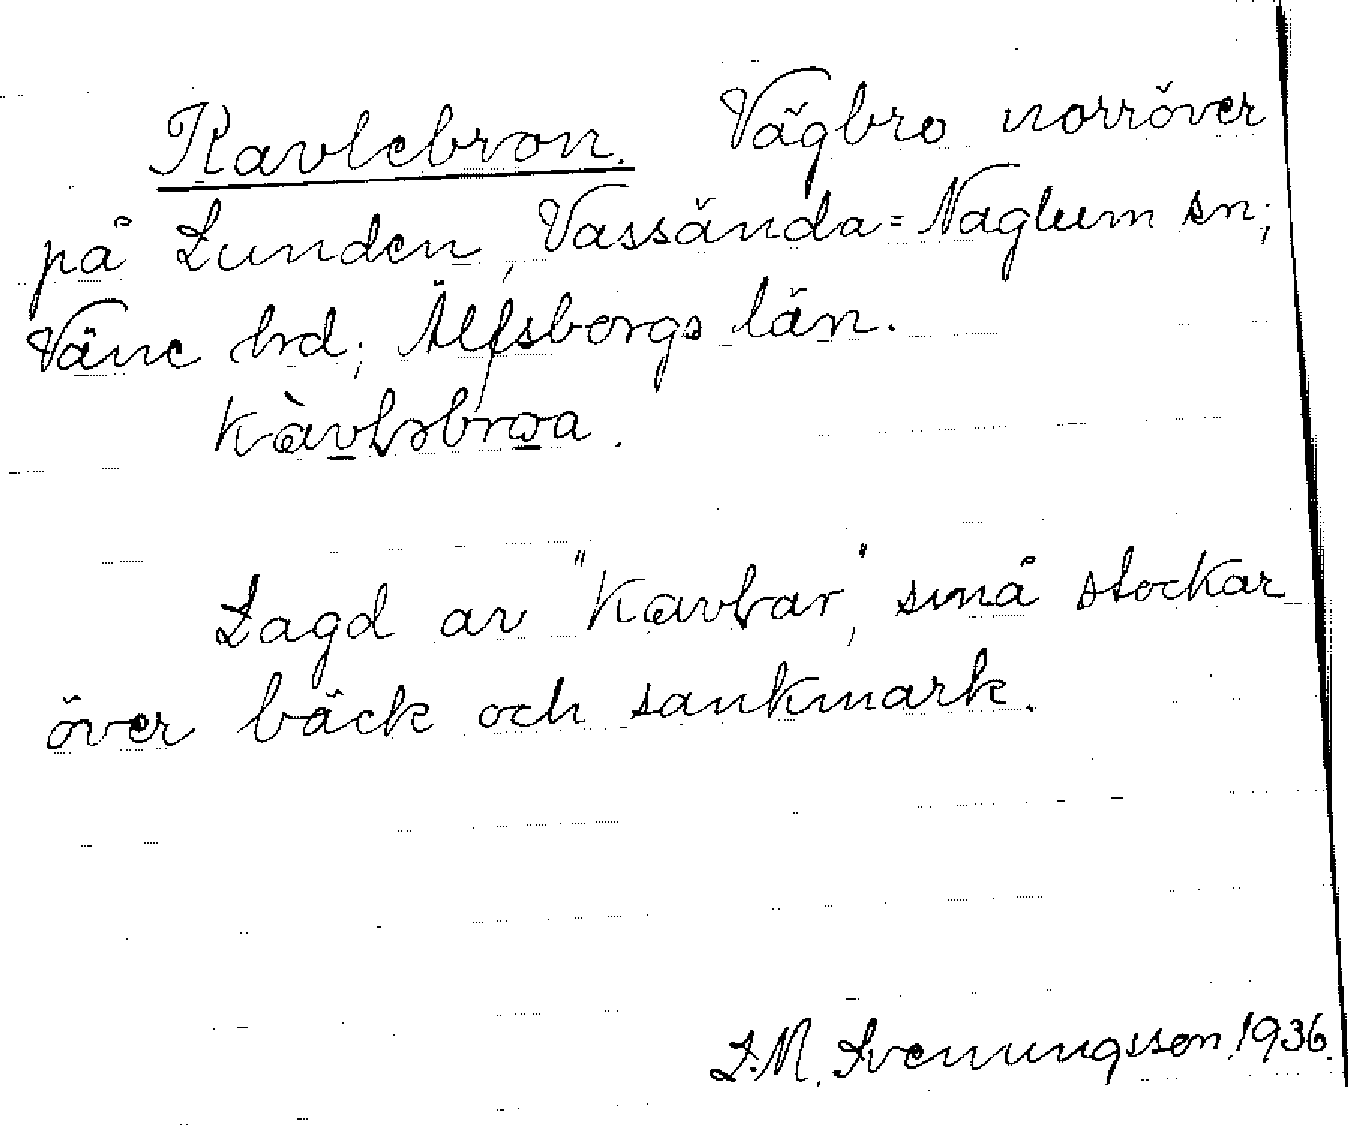 Kavlebron. Vägbro norröver
på Lunden, Vassända=Naglum sn;
Väne hd; Älfsborgs län.
kàvləbroa.
Lagd av "kavlar", små stockar
över bäck och sankmark.
L.M. Svenungsson 1936.